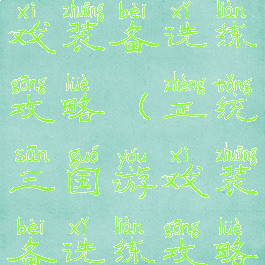 xì zhuāng bèi xǐ liàn
戏 装 备 洗 练
gōng lüè zhèng tǒng
攻 略 （ 正 统
sān guó yóu xì zhuāng
三 国 游 戏 装
bèi xǐ liàn gōng lüè
备 洗 练 攻 略